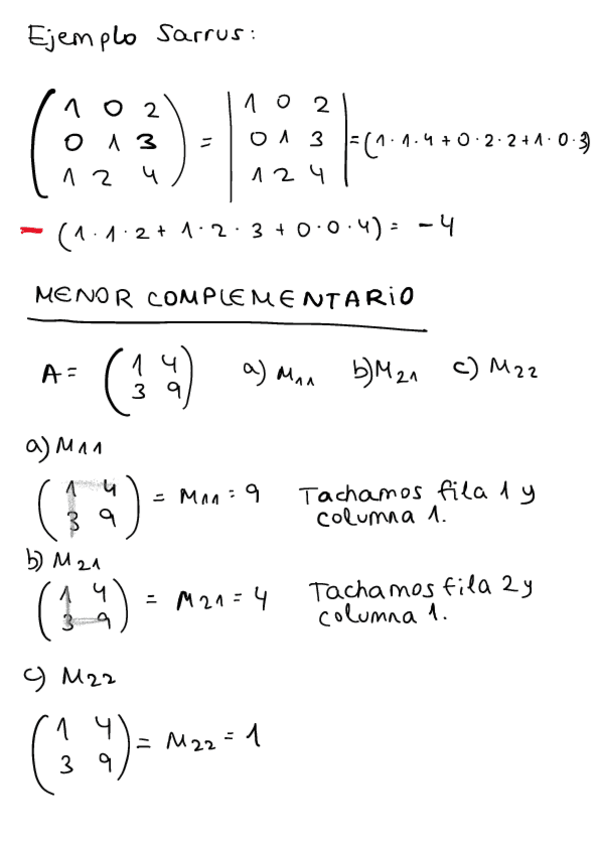 Ejemplo Sarrus:
(1 0 2
0 1 3
1 2 4) = |1 0 2
0 1 3
1 2 4| = (1·1·4 + 0·2·2 + 1·0·3)
- (1·1·2 + 1·2·3 + 0·0·4) = -4
MENOR COMPLEMENTARIO
A = (1 4
3 9) a) M11 b) M21 c) M22
a) M11
(1 4
3 9) = M11 = 9 Tachamos fila 1 y
columna 1.
b) M21
(1 4
3 9) = M21 = 4 Tachamos fila 2 y
columna 1.
c) M22
(1 4
3 9) = M22 = 1